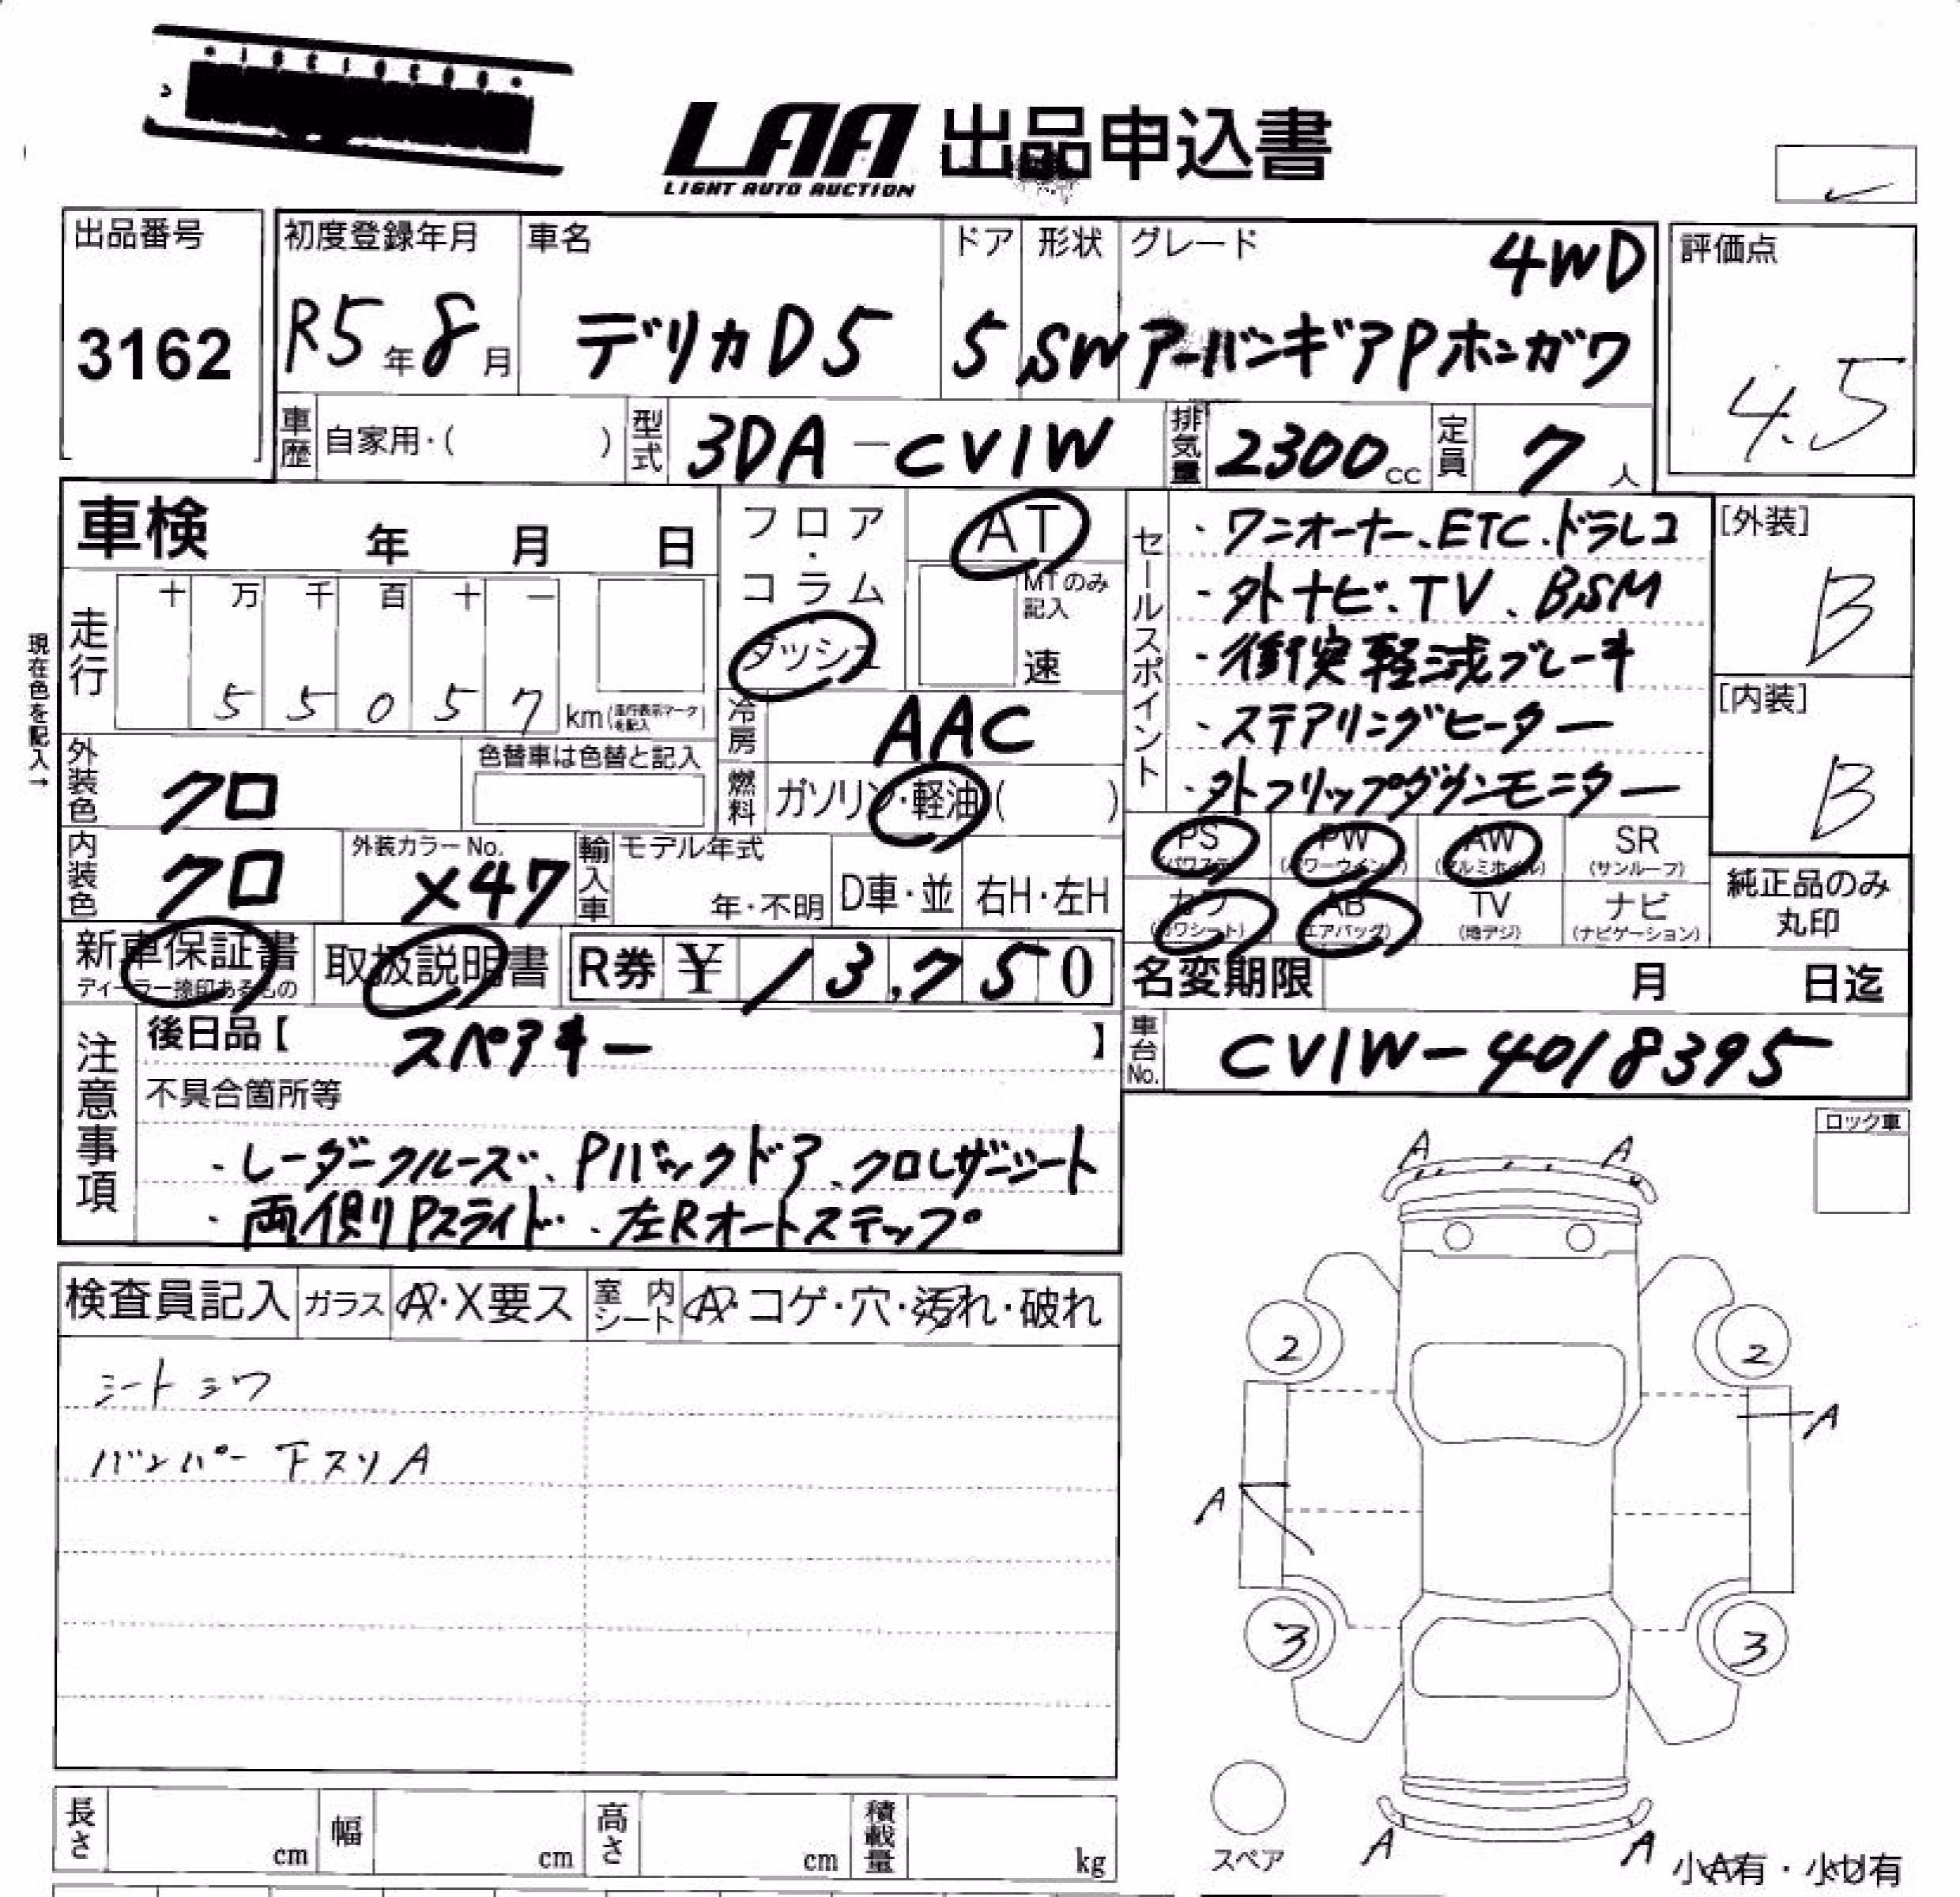 LAA 出品申込書
LIGHT AUTO AUCTION
出品番号
3162
初度登録年月
R5年8月
車名
デリカD5
ドア
5
形状
SW
グレード
4WD
アーバンギアPホンガワ
評価点
4.5
車歴 自家用・( )
型式 3DA-CV1W
排気量 2300cc
定員 7人
車検 年 月 日
フロア・コラム
ダッシュ
AT
MTのみ記入
速
セールスポイント
・ワンオーナー、ETC、ドラレコ
・外ナビ、TV、BSM
・衝突軽減ブレーキ
・ステアリングヒーター
・外フリップダウンモニター
[外装]
B
[内装]
B
現在色を記入→
走行
十 万 千 百 十 一
5 5 0 5 7 km(走行表示マークを記入)
冷房 AAC
外装色 クロ
色替車は色替と記入
燃料 ガソリン・軽油( )
内装色 クロ
外装カラーNo.
X47
輸入車
モデル年式
年・不明
D車・並
右H・左H
PS (パワステ)
PW (パワーウインドウ)
AW (アルミホイル)
SR (サンルーフ)
カワ (カワシート)
AB (エアバッグ)
TV (地デジ)
ナビ (ナビゲーション)
純正品のみ
丸印
新車保証書
ディーラー捺印あるもの
取扱説明書
R券 ¥ 13,750
名変期限 月 日迄
注意事項
後日品【 スペアキー 】
不具合箇所等
・レーダークルーズ、Pバックドア、クロレザーシート
・両側Pスライド、左Rオートステップ
車台No. CV1W-4018395
ロック車
検査員記入
ガラス A・X要ス
室内シート A・コゲ・穴・汚れ・破れ
シートシワ
バンパー下スリA
A A
2 2
A
A
3 3
スペア
A A
小A有・小U有
長さ cm
幅 cm
高さ cm
積載量 kg